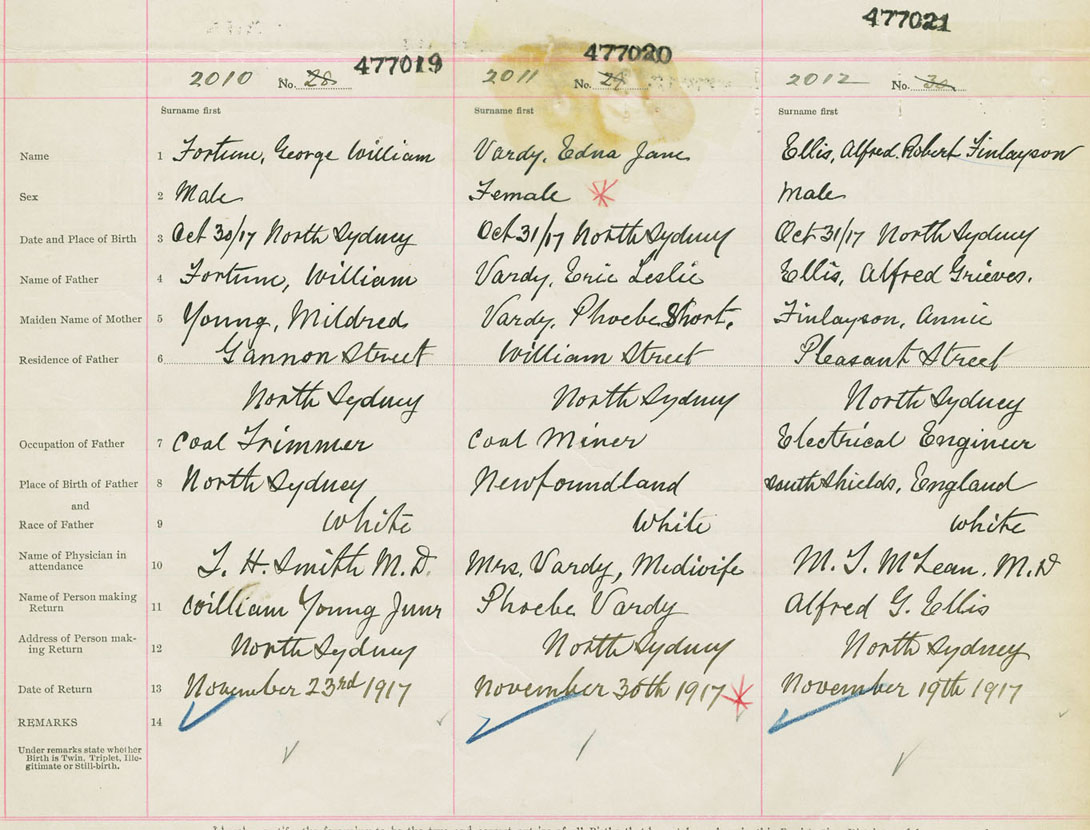 477021
477019
477020
2010 No. 28
2011 No. 29
2012 No. 30
Surname first Surname first Surname first
Name 1 Fortune, George William Vardy, Edna Jane Ellis, Alfred Robert Finlayson
Sex 2 Male Female Male
Date and Place of Birth 3 Oct 30/17 North Sydney Oct 31/17 North Sydney Oct 31/17 North Sydney
Name of Father 4 Fortune, William Vardy, Eric Leslie Ellis, Alfred Grieves.
Maiden Name of Mother 5 Young, Mildred Vardy, Phoebe Short. Finlayson, Annie
Residence of Father 6 Gannon Street William Street Pleasant Street
North Sydney North Sydney North Sydney
Occupation of Father 7 Coal Trimmer Coal Miner Electrical Engineer
Place of Birth of Father 8 North Sydney Newfoundland South Shields, England
and
Race of Father 9 White White White
Name of Physician in
attendance 10 T. H. Smith M.D. Mrs. Vardy, Medwife M. T. McLean. M.D
Name of Person making
Return 11 William Young Junr Phoebe Vardy Alfred G. Ellis
Address of Person mak-
ing Return 12 North Sydney North Sydney North Sydney
Date of Return 13 November 23rd 1917 November 30th 1917 November 19th 1917
REMARKS 14
Under remarks state whether
Birth is Twin, Triplet, Ille-
gitimate or Still-birth.